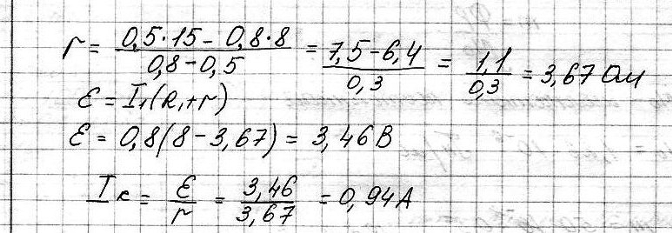 r = (0,5·15 - 0,8·8)/(0,8-0,5) = (7,5-6,4)/0,3 = 1,1/0,3 = 3,67 Ом
ε = I₁(R₁+r)
ε = 0,8(8-3,67) = 3,46 В
Iк = ε/r = 3,46/3,67 = 0,94 А